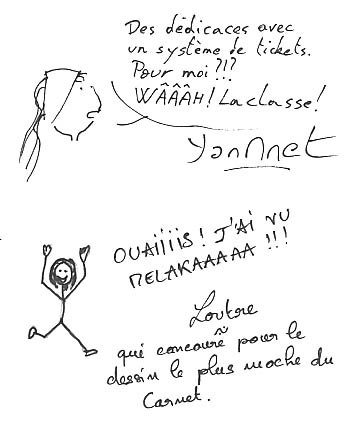 Des dédicaces avec
un système de tickets.
Pour moi ?!?
WÂÂÂH! La classe!
YanNnet
OUAIIIIS! J'AI VU
MELAKAAAAA !!!
Loutre
qui concoure pour le
dessin le plus moche du
Carnet.